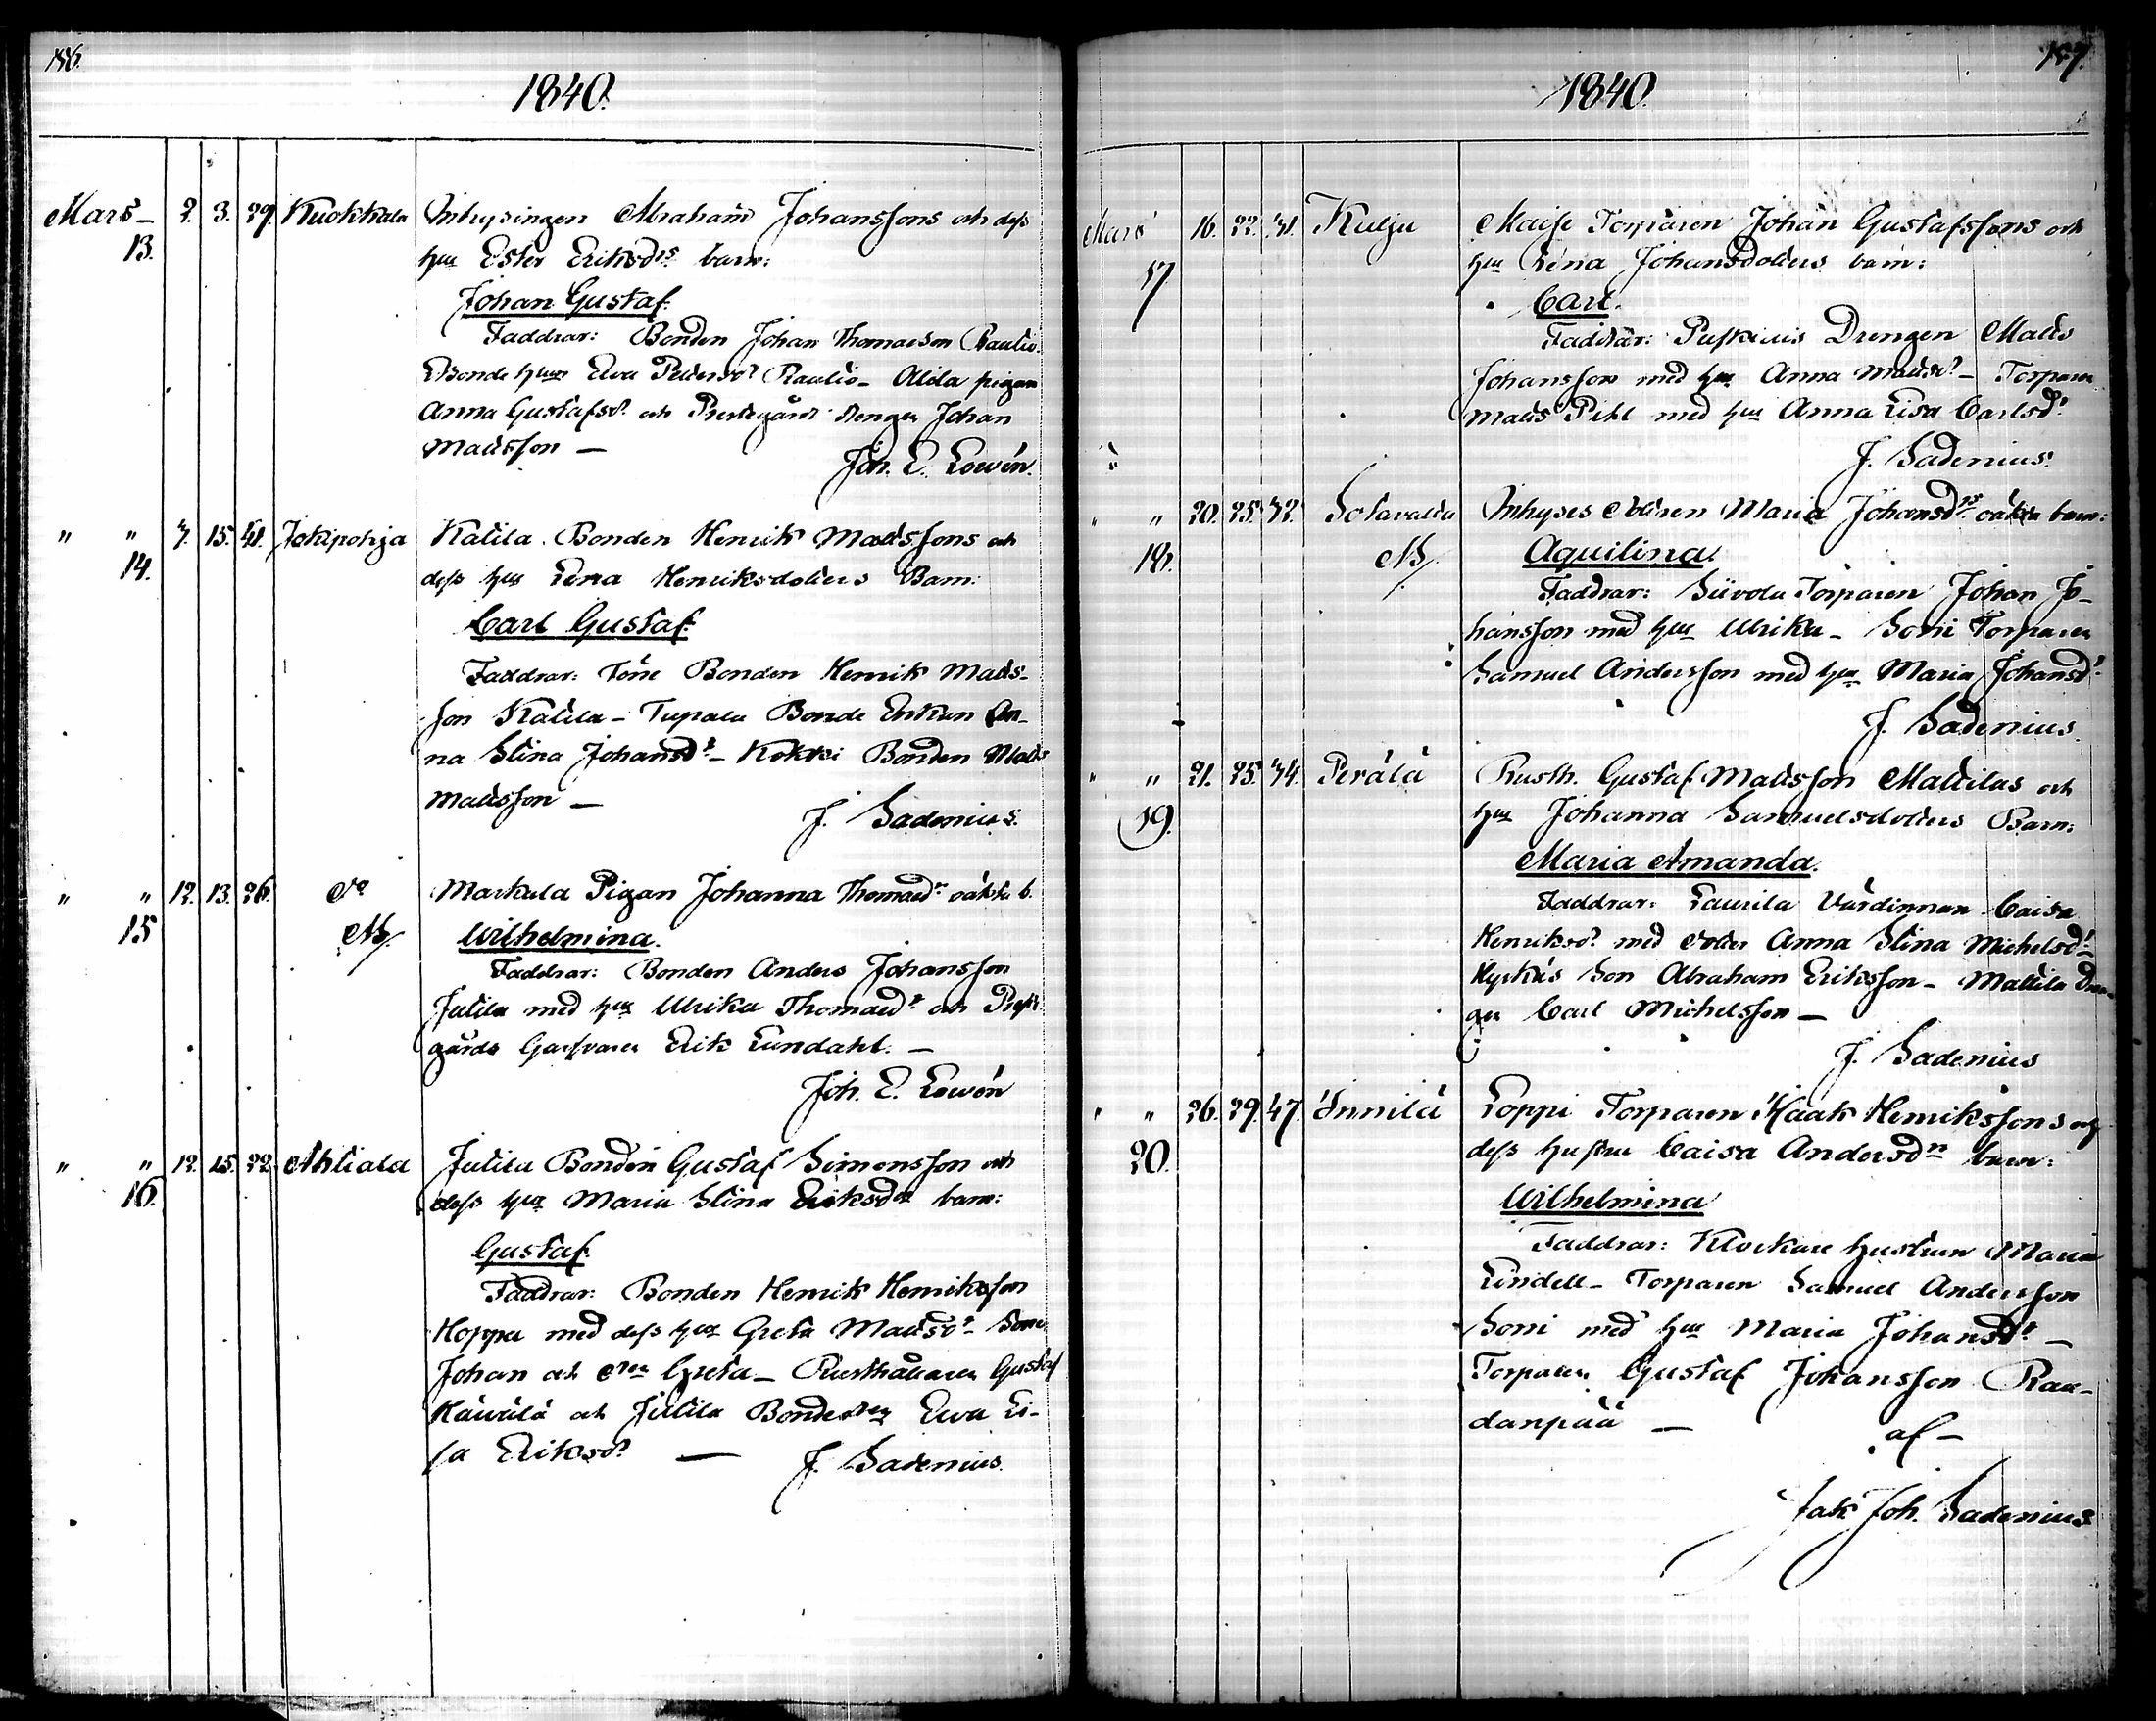 186.
1840.
Mars – 2. 3. 29. Kuokkala Inhysingen Abraham Johanssons och dess
13. hu Ester Eriksdrs barn:
Johan Gustaf.
Faddrar: Bonden Johan Thomasson Rautio.
Bonde hun Eva Pedersdr Rautio – Alila pigan
Anna Gustafsdr och Prestegårds drengen Johan
Mattsson —
Joh. E. Lowén.
" " 7. 15. 41. Jokipohja Katila Bonden Henrik Mattssons och
14. dess hu Lena Henriksdotters Barn:
Carl Gustaf.
Faddrar: Bonden Henrik Matts-
son Katila – Tupala Bonde Enkan An-
na Stina Johansdr – Kokki Bonden Matts
Mattsson —
J. Sadenius.
" " 12. 13. 26. Do Markula Pigan Johanna Thomasdrs oäkta b.
15 Wilhelmina.
Faddrar: Bonden Anders Johansson
Jutila med hu Ulrika Thomasdr och Prest-
gårds Garfvaren Erik Lundahl. —
Joh. E. Lowén
" " 12. 15. 22. Ahtiala Jutila Bonden Gustaf Simonsson och
16. dess hu Maria Stina Eriksdrs barn:
Gustaf.
Faddrar: Bonden Henrik Henriksson
Hoppu med dess hu Greta Mattsdr – Sone
Johan och Greta – Rusthållaren Gustaf
och Jutila Bonde Ewa Li-
sa Eriksdr — J. Sadenius.
187.
1840.
Mars 16. 22. 31. Kulju Torparen Johan Gustafssons och
17 hu Lena Johansdotters barn:
Carl.
Faddrar: Drengen Matts
Johansson med hu Anna Mattsdr – Torparen
Matts Pihl med hu Anna Lisa Carlsdr
J. Sadenius.
" " 20. 25. 32. Sotavalta Inhyses Maria Johansdrs oäkta barn:
18. Aquilina.
Faddrar: Siivola Torparen Johan Jo-
hansson med hu Ulrika – Soni Torparen
Samuel Andersson med hu Maria Johansdr
J. Sadenius.
" " 21. 25. 34. Perälä Rusth. Gustaf Mattsson Mattilas och
19. hu Johanna Samuelsdotters Barn:
Maria Amanda.
Faddrar: Laurila Värdinnan Caisa
Henriksdr med dotter Anna Stina Michelsdr –
Son Abraham Eriksson – Mattila Dren-
gen Carl Michelsson —
J. Sadenius
" " 26. 29. 47. Innilä Loppi Torparen Isaak Henrikssons och
20. dess hustru Caisa Andersdrs barn:
Wilhelmina
Faddrar: Klockare hustrun Maria
Lindell – Torparen Samuel Andersson
Soni med hu Maria Johansdr –
Torparen Gustaf Johansson Rau-
danpää — af –
Jak. Joh. Sadenius